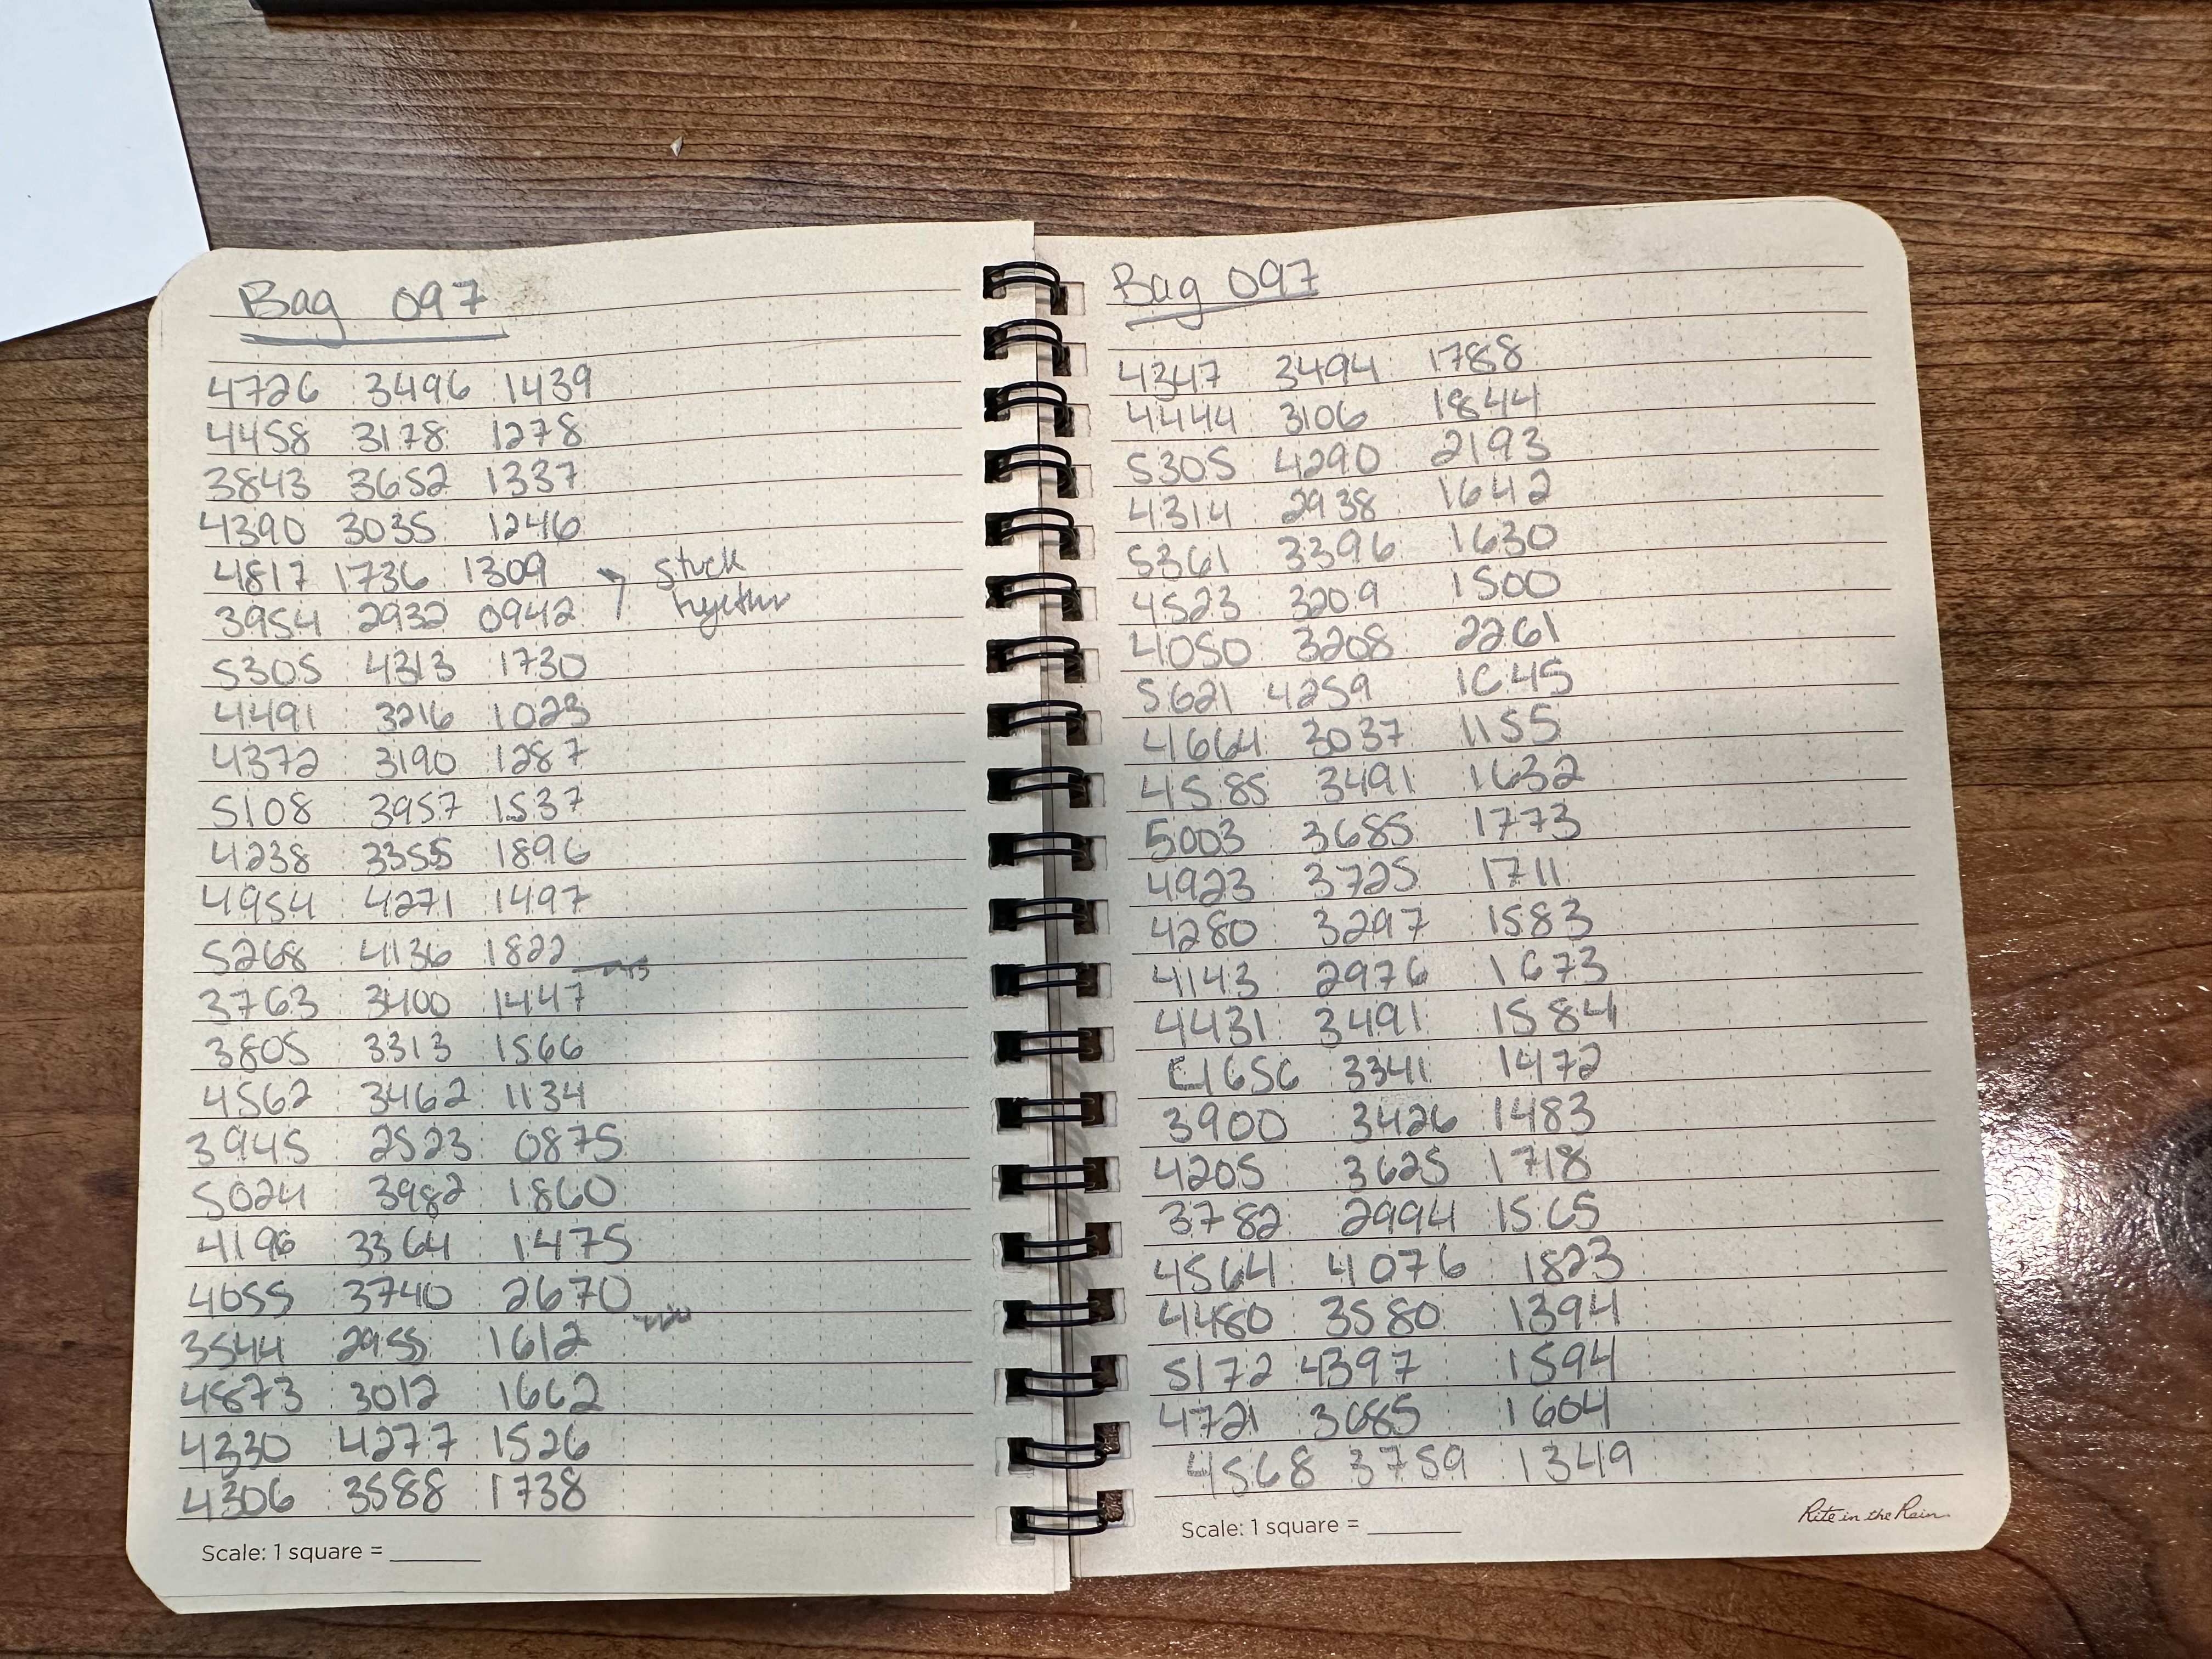 Bag 097
4726 3496 1439
4458 3178 1278
3843 3652 1337
4390 3035 1246
4817 1736 1309 Stuck
3954 2930 0942 together
5305 4343 1730
4491 3216 1023
4372 3190 1287
5108 3957 1537
4238 3355 1896
4954 4271 1497
5268 4136 1822
3763 3400 1447
3805 3313 1566
4562 3462 1134
3945 2523 0875
5024 3982 1860
4196 3364 1475
4655 3740 2670
3544 2955 1612
4673 3012 1662
4330 4277 1526
4306 3588 1738
Scale: 1 square =
Bag 097
4347 3494 1788
4444 3106 1844
5305 4290 2193
4314 2938 1642
5361 3396 1630
4523 3209 1500
4050 3208 2261
5621 4259 1645
4664 3037 1155
4585 3491 1632
5003 3685 1773
4923 3725 1711
4280 3297 1583
4143 2976 1673
4431 3491 1584
4656 3341 1472
3900 3426 1483
4205 3625 1718
3782 2994 1565
4564 4076 1823
4480 3580 1394
5172 4397 1594
4721 3685 1664
4568 3759 1349
Scale: 1 square =
Rite in the Rain